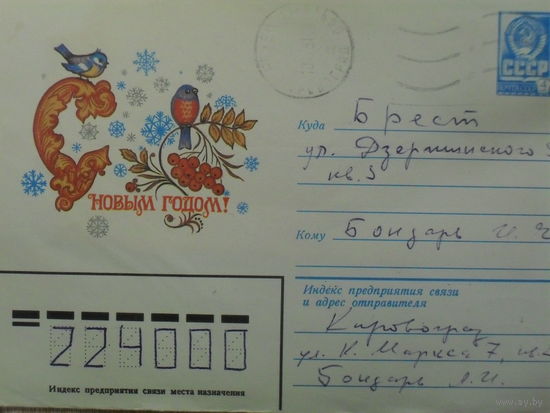 С
НОВЫМ ГОДОМ!
СССР
Куда
Брест
ул. Дзержинского
кв. 5
Кому
Бондарь И. Ч
Индекс предприятия связи
и адрес отправителя
Кировоград
ул. К. Маркса 7, кв
Бондарь Л.И.
224000
Индекс предприятия связи места назначения
www.ay.by